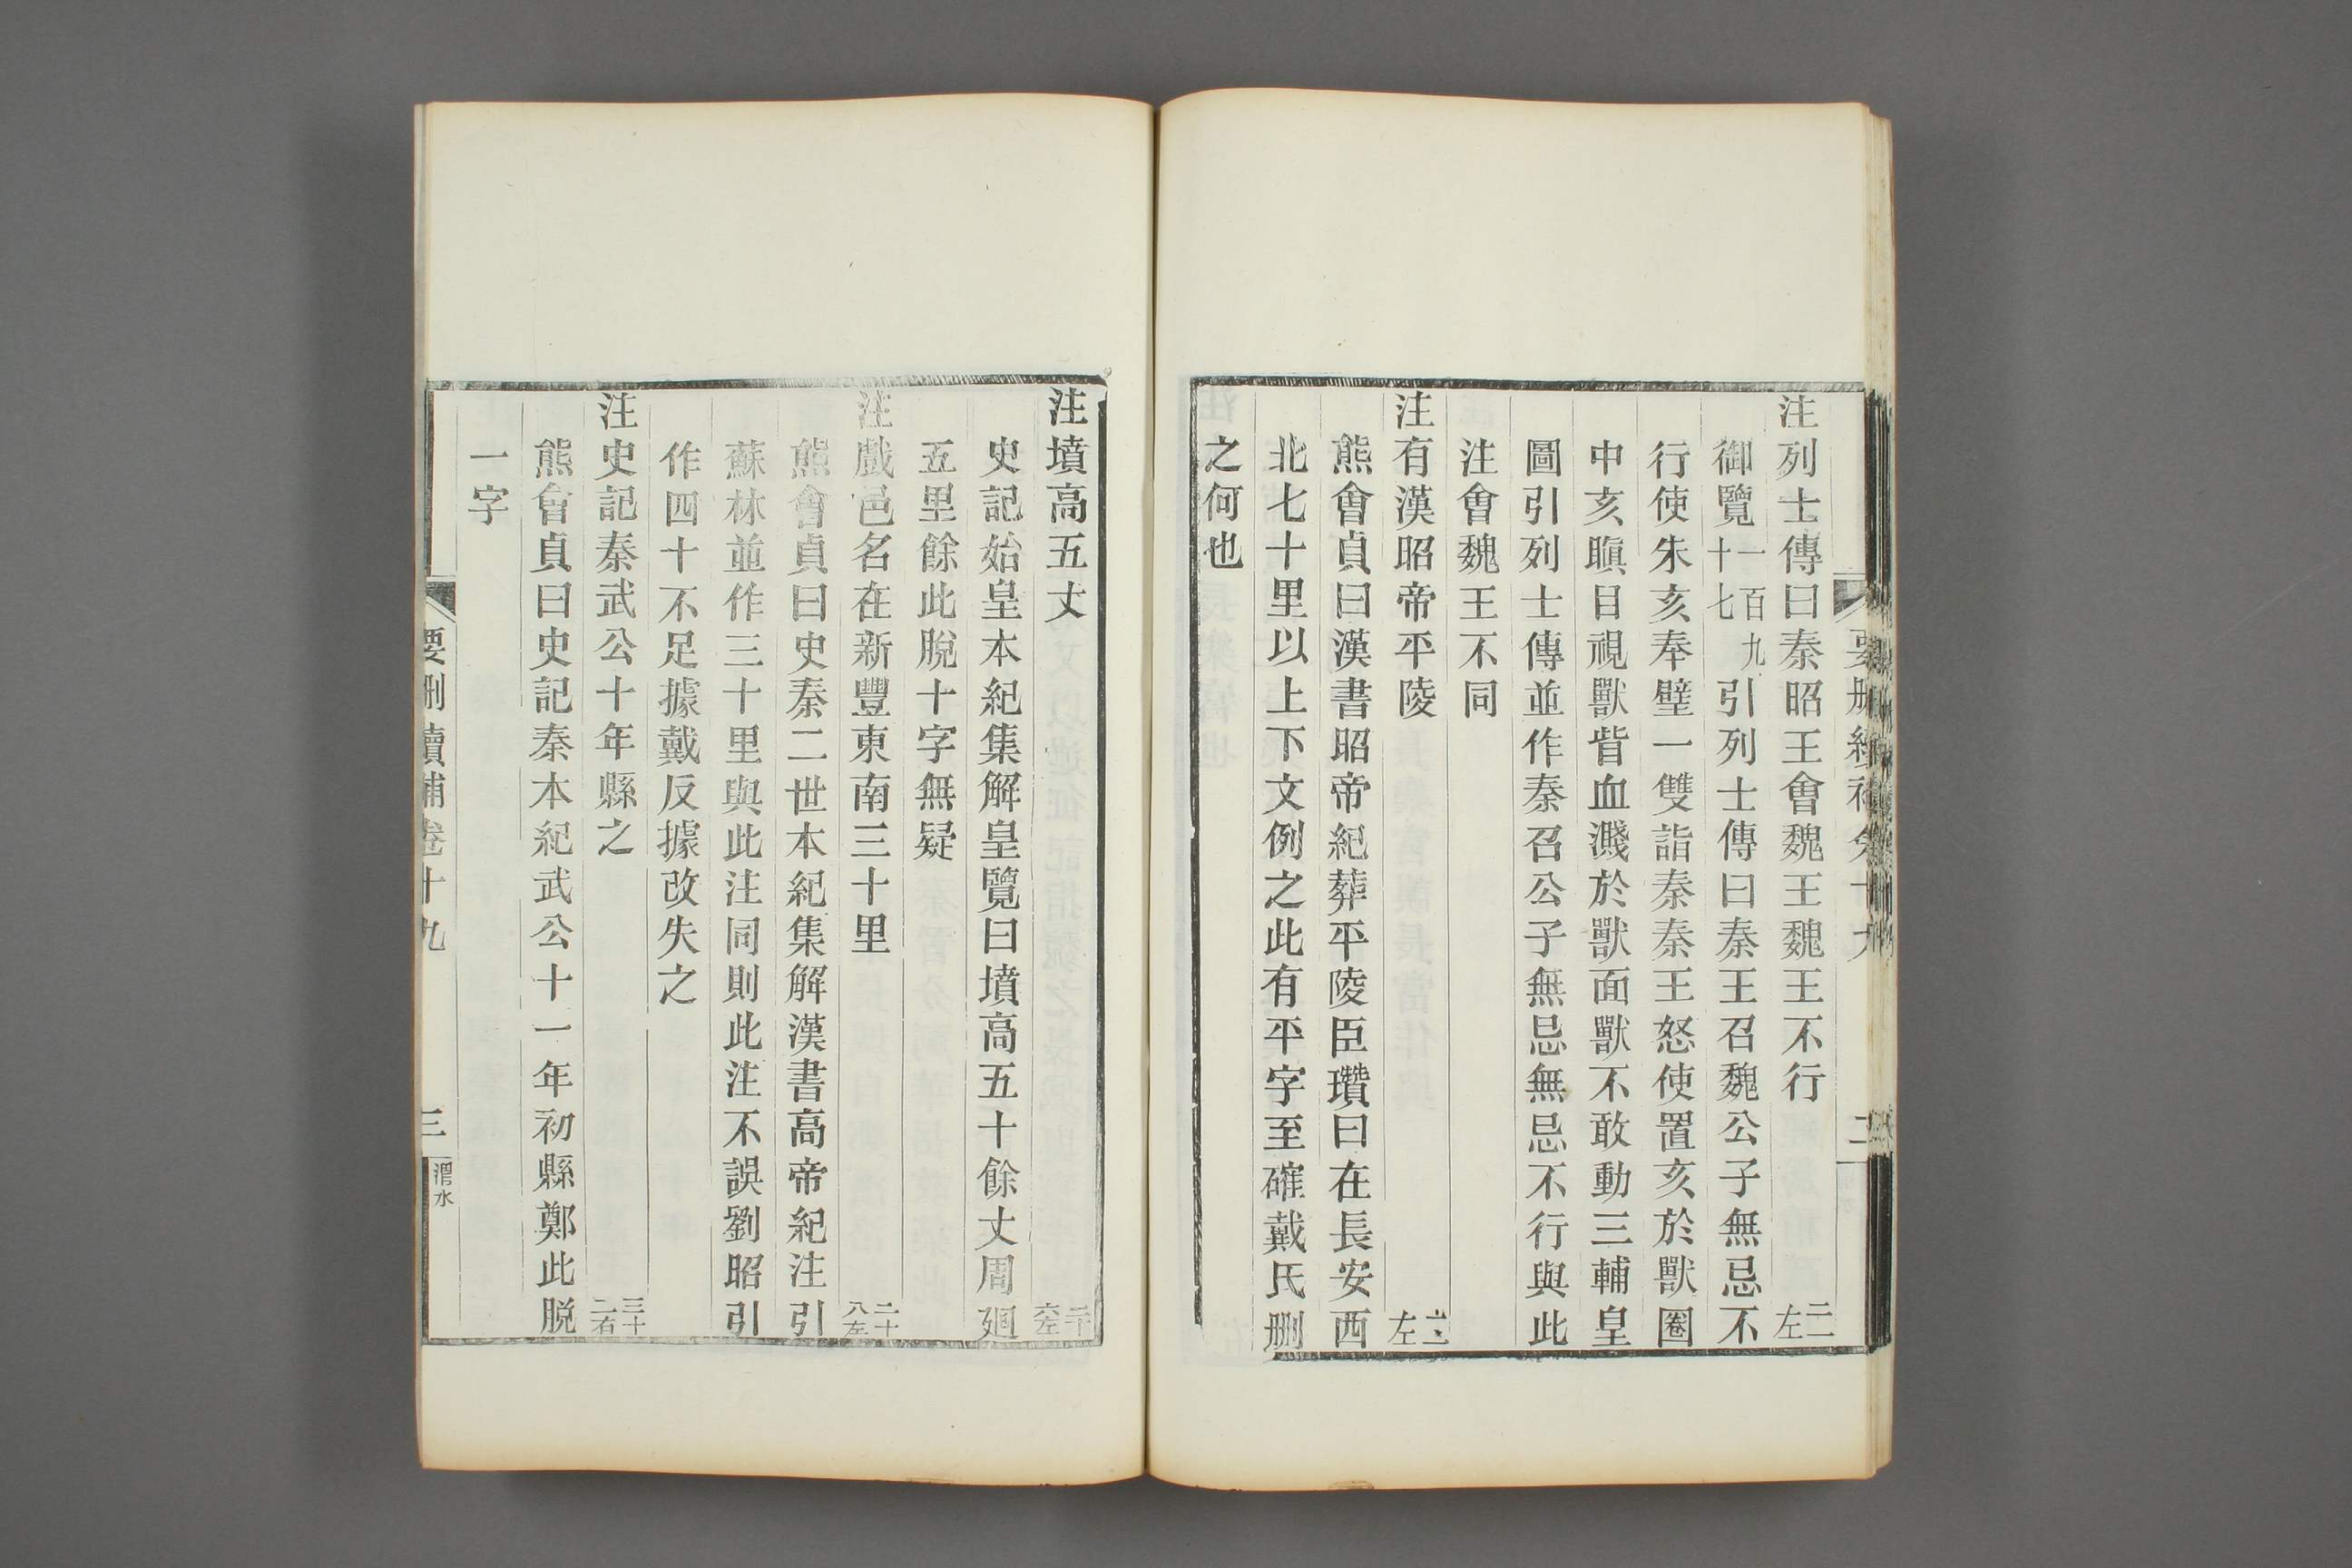 注列士傳曰秦昭王會魏王魏王不行 二二左
御覽一百九十七引列士傳曰秦王召魏公子無忌不
行使朱亥奉璧一雙詣秦秦王怒使置亥於獸圈
中亥瞋目視獸眥血濺於獸面獸不敢動三輔皇
圖引列士傳並作秦召公子無忌無忌不行與此
注會魏王不同
注有漢昭帝平陵 左
熊會貞曰漢書昭帝紀葬平陵臣瓚曰在長安西
北七十里以上下文例之此有平字至確戴氏刪
之何也
注墳高五丈 二十六左
史記始皇本紀集解皇覽曰墳高五十餘丈周廻
五里餘此脫十字無疑
注戲邑名在新豐東南三十里 二十八左
熊會貞曰史秦二世本紀集解漢書高帝紀注引
蘇林並作三十里與此注同則此注不誤劉昭引
作四十不足據戴反據改失之
注史記秦武公十年縣之 三十二右
熊會貞曰史記秦本紀武公十一年初縣鄭此脫
一字
要刪續補卷十九 三 渭水